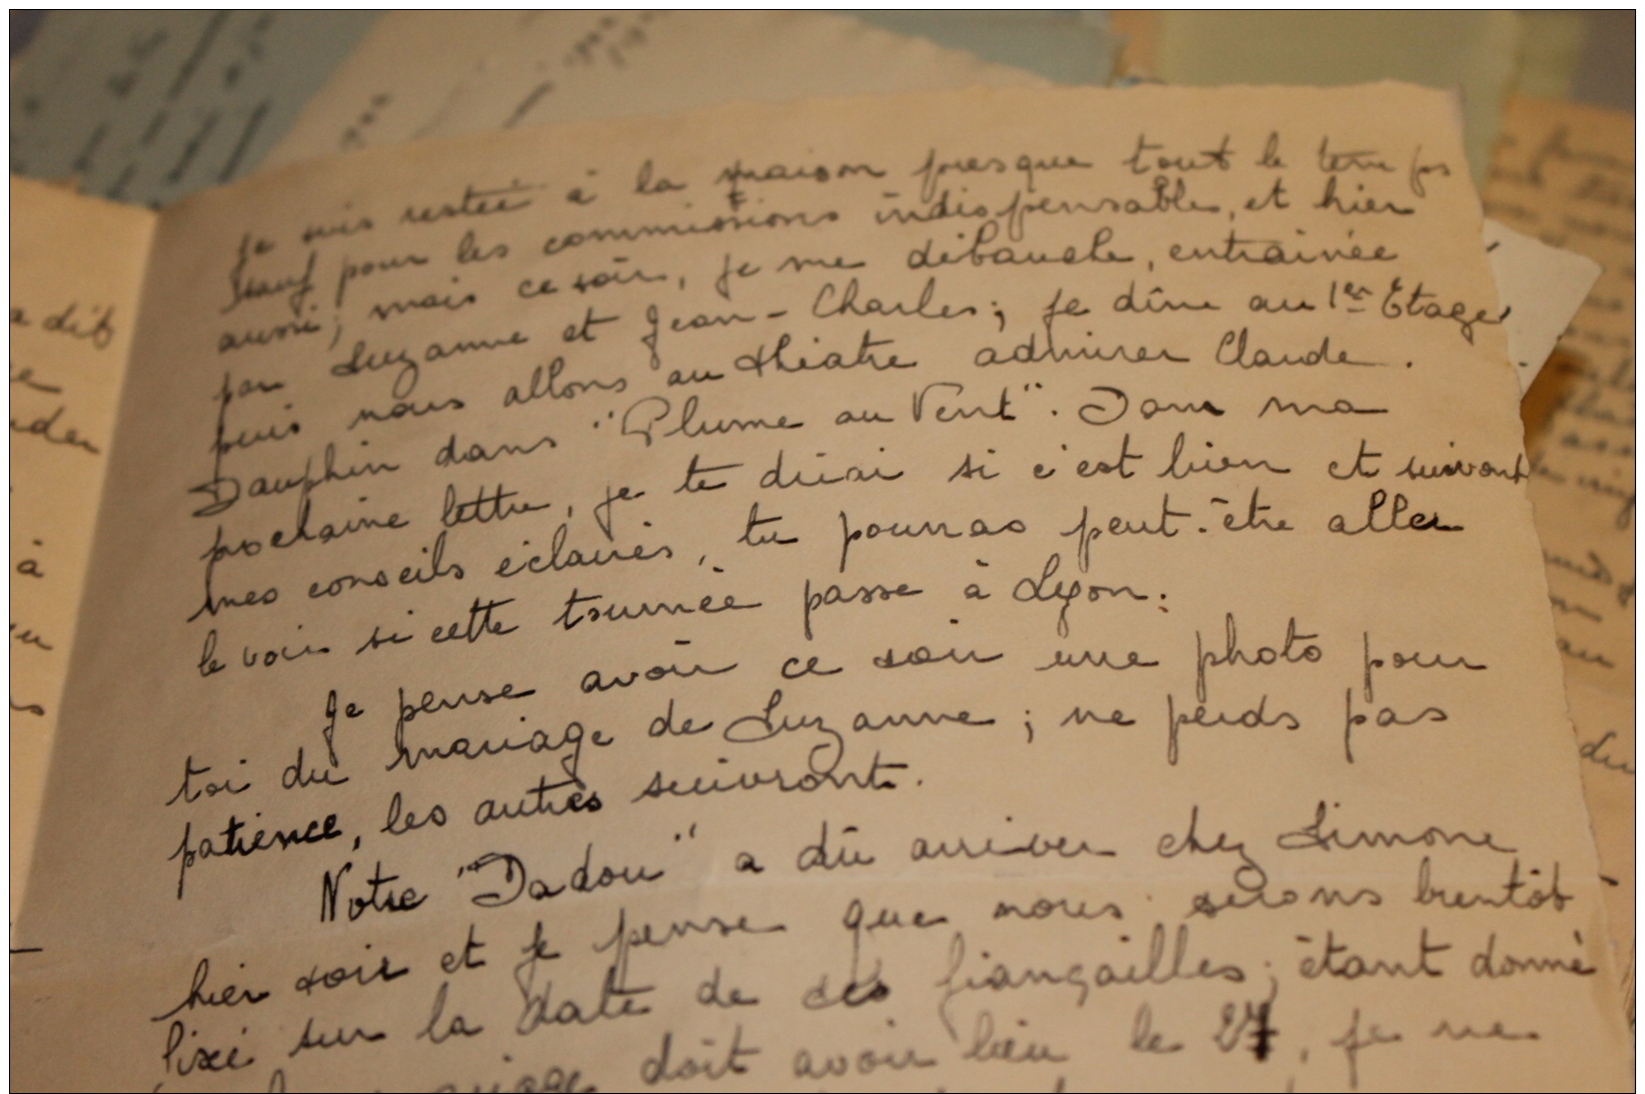 je suis restée à la maison presque tout le temps
sauf pour les commissions indispensables, et hier
aussi; mais ce soir, je me débauche, entrainée
par Suzanne et Jean-Charles; je dîne au 1er Etage
puis nous allons au théatre admirer Claude
Dauphin dans "Plume au Vent". Dans ma
prochaine lettre, je te dirai si c'est bien et suivant
mes conseils éclairés, tu pourras peut-être aller
le voir si cette tournée passe à Lyon.
Je pense avoir ce soir une photo pour
toi du mariage de Suzanne; ne perds pas
patience, les autres suivront.
Notre "Dadou" a dû arriver chez Simone
hier soir et je pense que nous serons bientôt
fixé sur la date de ses fiançailles; étant donné
mariage doit avoir lieu le 27, je ne